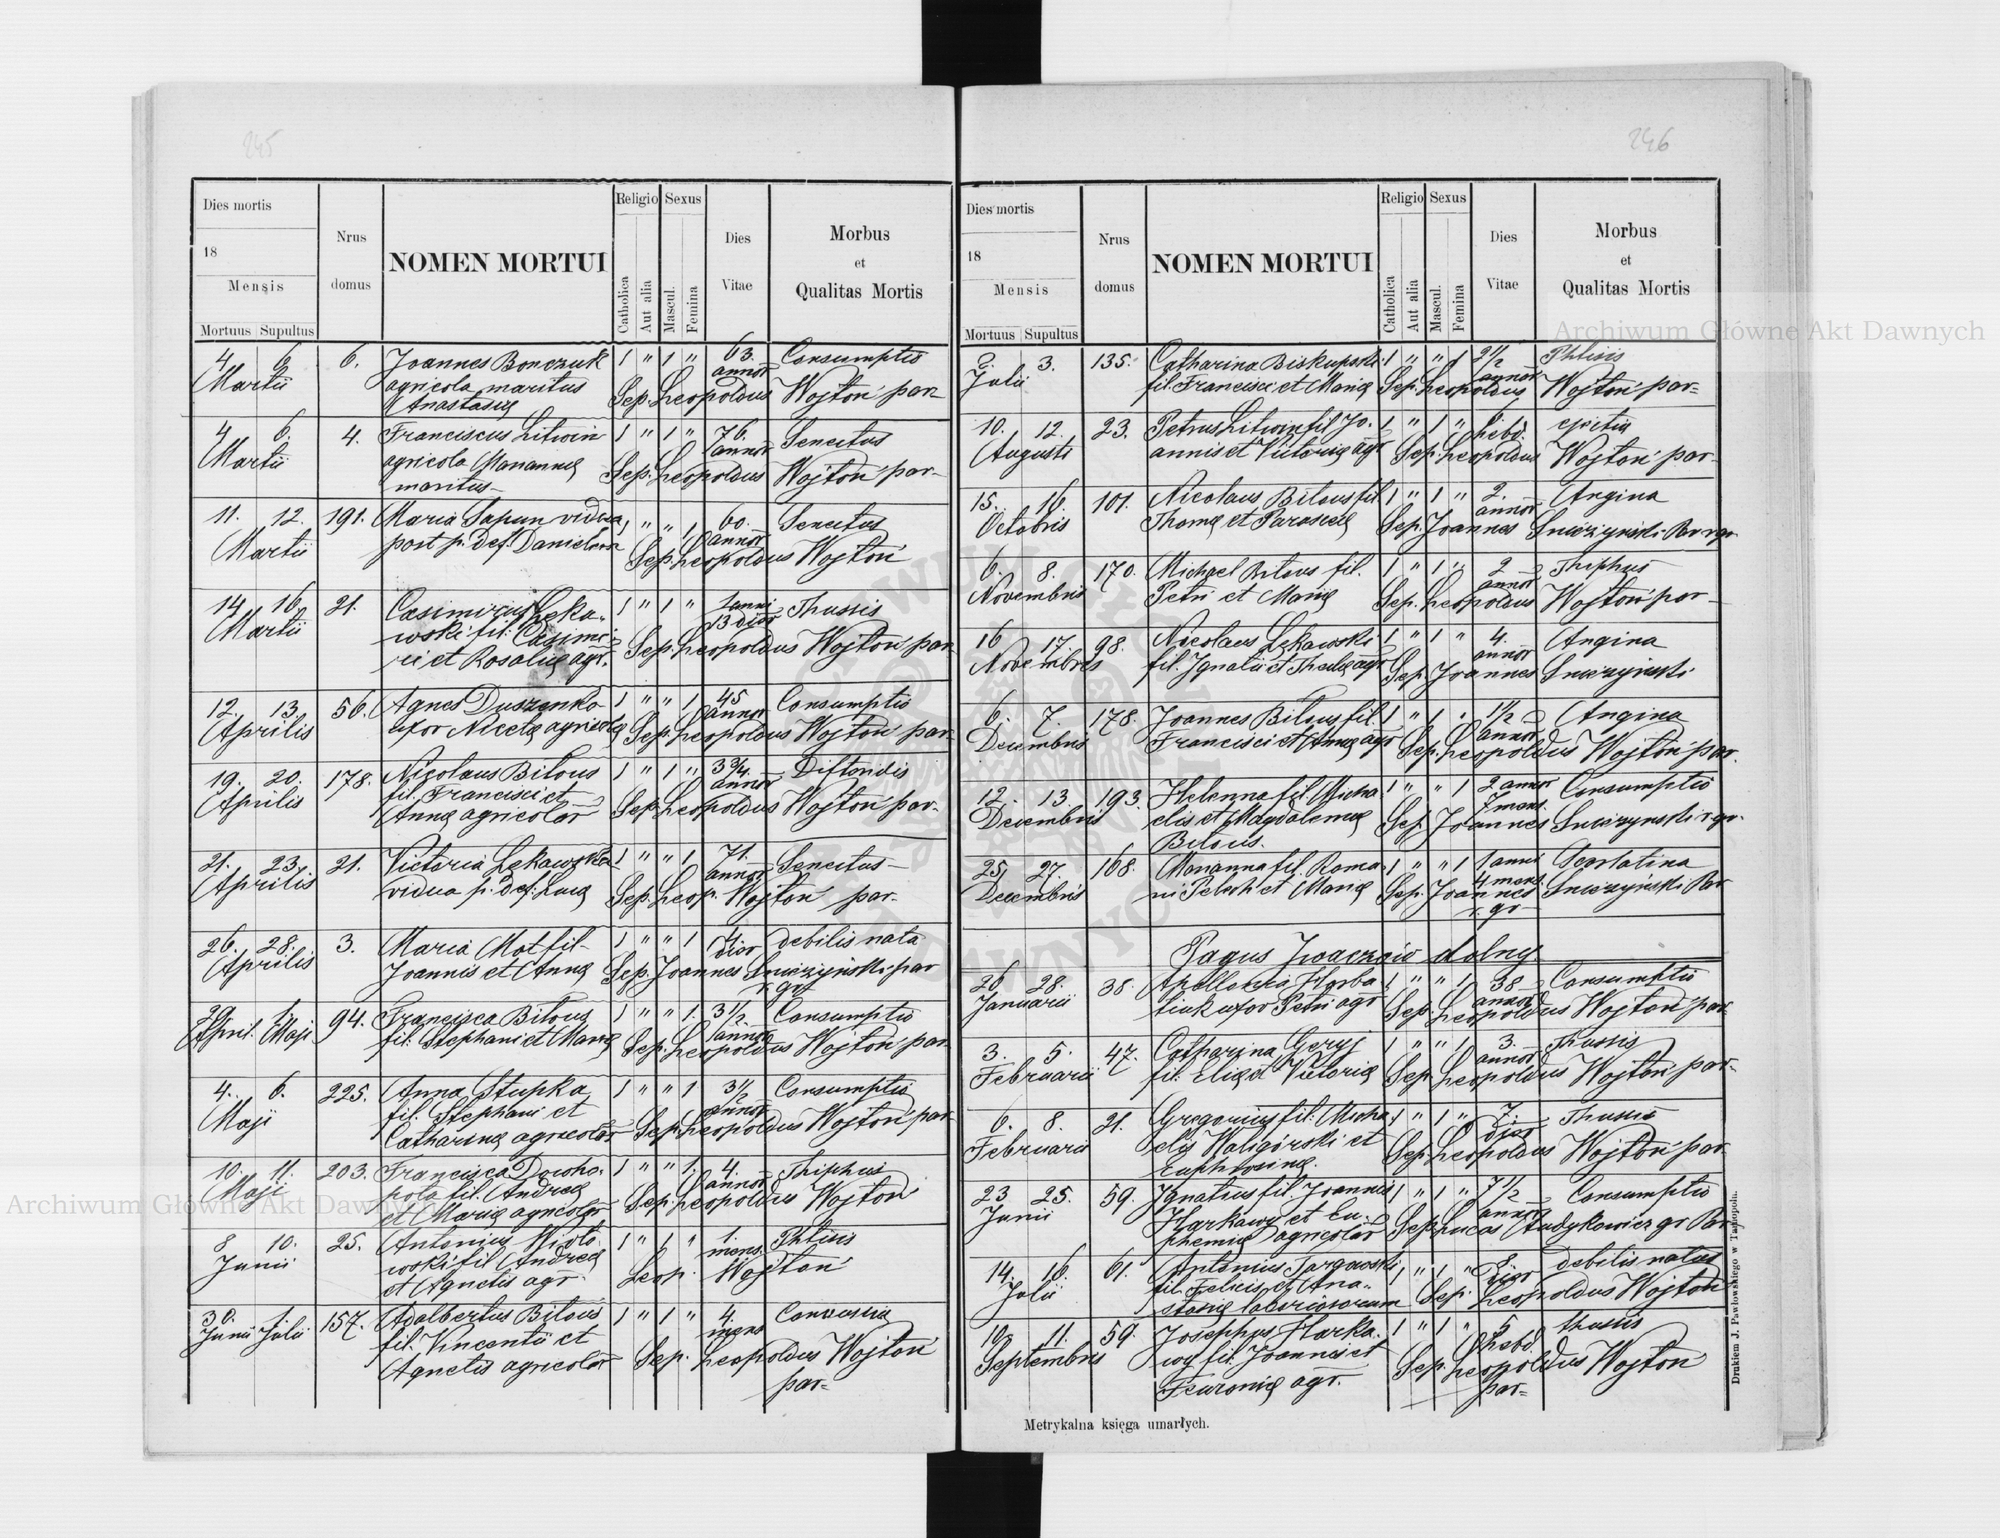 245
Dies mortis
18
Mensis
Mortuus Supultus
Nrus
domus
NOMEN MORTUI
Religio
Catholica
Aut alia
Sexus
Mascul.
Femina
Dies
Vitae
Morbus
et
Qualitas Mortis
4 6 6. Joannes Bonczuk 1 " 1 " 63. Consumptio
Martii agricola maritus annor
Anastasiæ Sep. Leopoldus Wojtoń par
4 6. 4. Franciscus Litwin 1 " 1 " 76. Senectus
Martii agricola Mariannæ annor
maritus Sep. Leopoldus Wojtoń par
11. 12. 191. Maria Sapun vidua 1 " " 1 60. Senectus
Martii post p. def. annor
Sep. Leopoldus Wojtoń
14 16 21. Casimirus Łęka- 1 " 1 " 1 anni Thussis
Martii wski fil. Casimi- 13 dior
ri et Rosaliæ agr. Sep. Leopoldus Wojtoń par
12. 13. 56. Agnes Duszenko 1 " " 1 45 Consumptio
Aprilis uxor Nicetæ agricolæ annor
Sep. Leopoldus Wojtoń par
19. 20. 178. Nicolaus Bilous 1 " 1 " 3 3/4
Aprilis fil. Francisci et annor
Annæ agricolor Sep. Leopoldus Wojtoń par-
21. 23. 21. Victoria Łękawska 1 " " 1 71. Senectus
Aprilis vidua p. def. Lucæ annor
Sep. Leop. Wojtoń par-
26. 28. 3. Maria Mot fil 1 " " 1 4. debilis nata
Aprilis Joannis et Annæ dior
Sep. Joannes Snieżyński par
r. gr
29 1. 94. Francisca Bilous 1 " " 1. 3 1/2 Consumptio
April. Maji fil. Stephani et Mariæ annor
Sep. Leopoldus Wojtoń par
4. 6. 225. Anna Stupka 1 " " 1 3 1/2 Consumptio
Maji fil. Stephani et annor
Catharinæ agricolor Sep. Leopoldus Wojtoń par
10. 11. 203. Francisca Dowho- 1 " " 1. 4. Thiphus
Maji pola fil. Andreæ annor
et Mariæ agricolor Sep. Leopoldus Wojtoń
8 10. 25. Antonius 1 " 1 " 1. Phtisis
Junii wski fil Andreæ mens.
et Agnetis agr. Leop. Wojtoń
30. 1 157. Adalbertus Bilous 1 " 1 " 4.
Junii Julii fil. Vincentii et mens
Agnetis agricolor Sep. Leopoldus Wojtoń
par-
246
Dies mortis
18
Mensis
Mortuus Supultus
Nrus
domus
NOMEN MORTUI
Religio
Catholica
Aut alia
Sexus
Mascul.
Femina
Dies
Vitae
Morbus
et
Qualitas Mortis
2. 3. 135. Catharina Biskupski 1 " " 1 2 1/2 Phtisis
Julii fil. Francisci et Mariæ annor
Sep. Leopoldus Wojtoń par-
10. 12. 23. Petrus Litwin fil. Jo- 1 " 1 " hebd.
Augusti annis et Victoriæ agr Sep. Leopoldus Wojtoń par-
15. 16. 101. Nicolaus Bilous fil 1 " 1 " 2. Angina
Octobris Thomæ et Parasciæ annor
Sep. Joannes Snieżynski Par r gr
6. 8. 170. Michael Bilous fil. 1 " 1 " 2 Thiphus
Novembris Petri et Mariæ annor
Sep. Leopoldus Wojtoń par-
16 17. 98. Nicolaus Łękawski 1 " 1 " 4. Angina
Novembris fil. Ignatii et Theclæ agr annor
Sep. Joannes Snieżyński
6. 7. 178. Joannes Bilous fil. 1 " 1 " 1 1/2 Angina
Decembris Francisci et Annæ agr annor
Sep. Leopoldus Wojtoń par.
12. 13. 193. Helenna fil. Micha- 1 " " 1 2 annor Consumptio
Decembris elis et Magdalenæ 7 mens.
Bilous. Sep. Joannes Snieżynski r. gr.
25. 27. 168. Marianna fil. Roma- 1 " " 1 1 anni Scarlatina
Decembris ni et Mariæ 4 mens.
Sep. Joannes Snieżyński Par
r. gr
Pagus Iwaczów dolny.
26. 28. 38. Apollonia Horba- 1 " " 1 38 Consumptio
Januarii tiuk uxor Petri agr annor
Sep. Leopoldus Wojtoń par
3. 5. 47. Catharina Geryj 1 " " 1 3. Thussis
Februarii fil. Eliæ et Victoriæ annor
Sep. Leopoldus Wojtoń par-
6. 8. 21. Gregorius fil. Micha- 1 " 1 " 7. Thussis
Februarii elis Waligórski et dior
Euphrosinæ. Sep. Leopoldus Wojtoń par
23 25. 59. Ignatius fil. Joannis 1 " 1 " 7 1/2 Consumptio
Junii Harkawy et Eu- annor
phemiæ agricolor Sep. Lucas Andykowicz gr Par
14. 16. 61. Antonius Targowski 1 " 1 " 8. debilis natus
Julii fil. Felicis et Ana- dior
stasiæ laboriosorum Sep. Leopoldus Wojtoń
10. 11. 59. Josephus Harka- 1 " 1 " 5 thusis
Septembris wy fil. Joannis et hebd.
Fewroniæ agr. Sep. Leopoldus Wojtoń
par-
Metrykalna księga umarłych.
Drukiem J. Pawłowskiego w Tarnopolu.
Archiwum Główne Akt Dawnych
Archiwum Główne Akt Dawnych